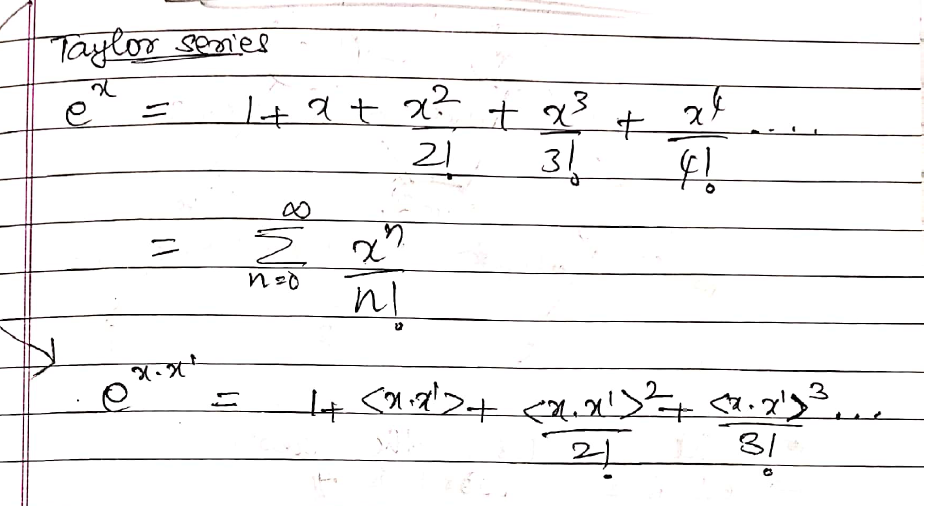 Taylor series
e^x = 1 + x + x^2/2! + x^3/3! + x^4/4! .....
= ∑_{n=0}^{∞} x^n/n!
e^{x.x'} = 1 + <x.x'> + <x.x'>^2/2! + <x.x'>^3/3! ...